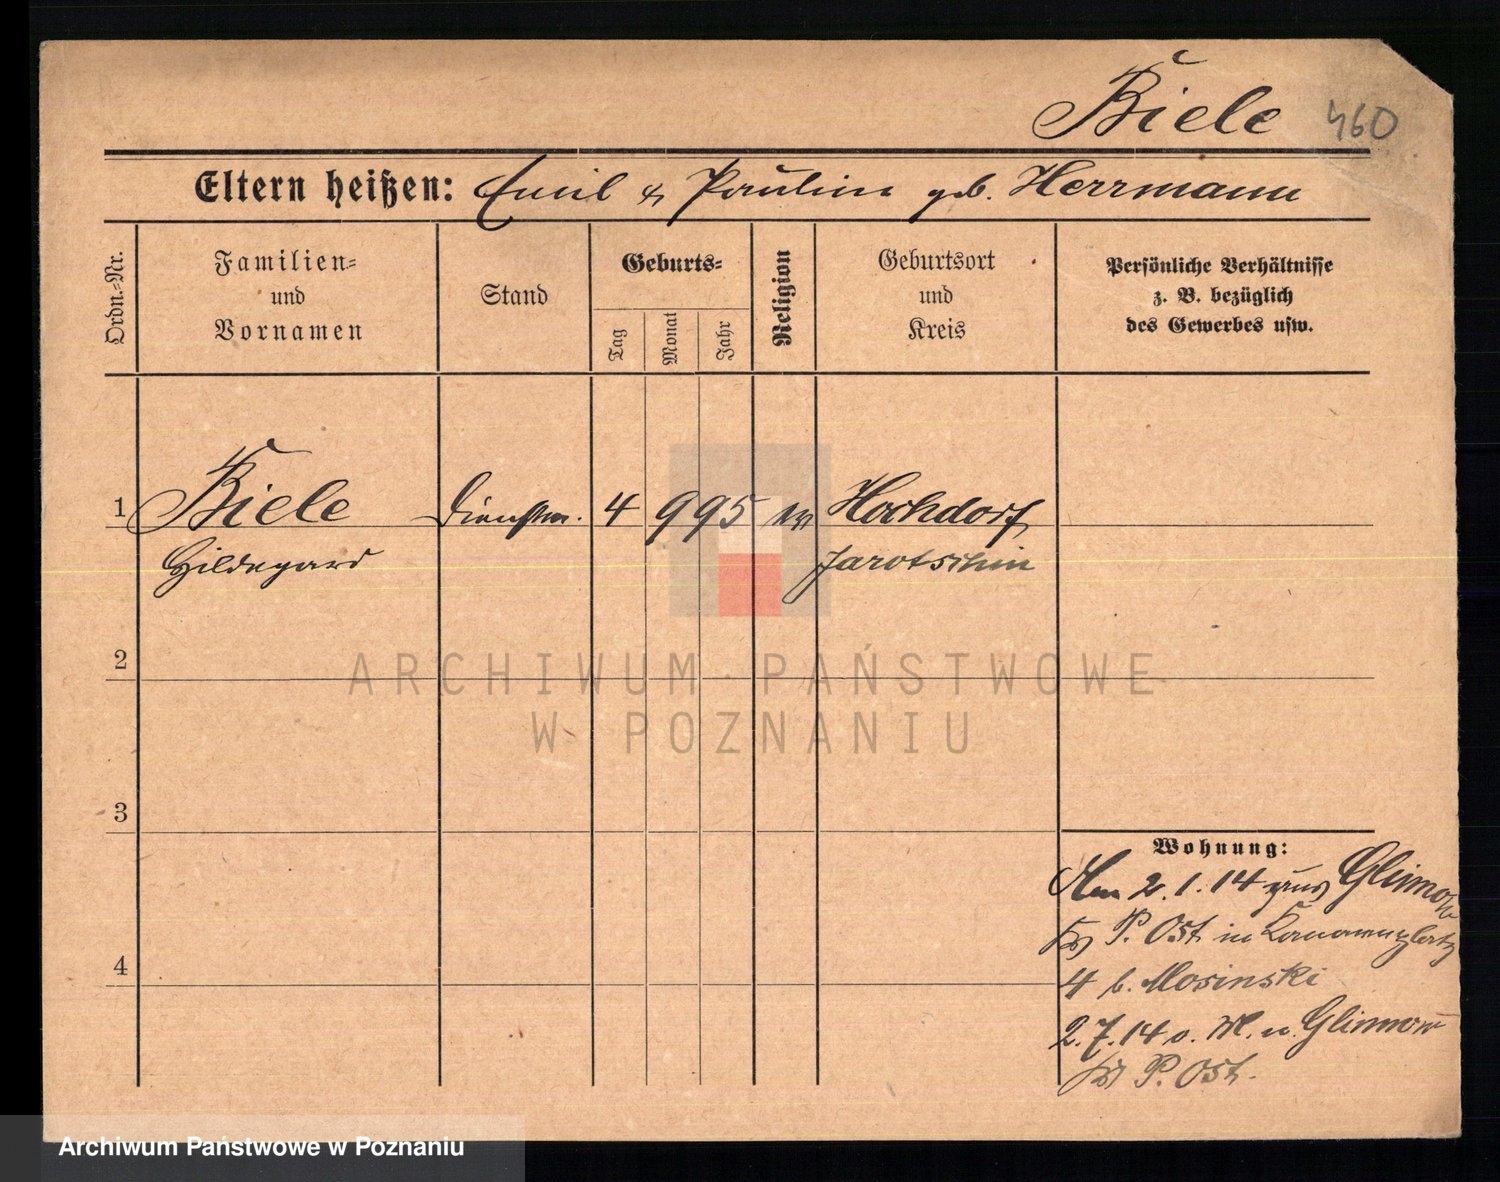 Biele 460
Eltern heißen: Emil & Pauline geb. Herrmann
Ordn.-Nr.
Familien-
und
Vornamen
Stand
Geburts-
Tag
Monat
Jahr
Religion
Geburtsort
und
Kreis
Persönliche Verhältnisse
z. B. bezüglich
des Gewerbes usw.
1 Biele Dienstm. 4 9 95 ev Hochdorf
Hildegard Jarotschin
2
ARCHIWUM PAŃSTWOWE
W POZNANIU
3
Wohnung:
Am 2.1.14 Glinnow
P. Ost in
4
4 b. Mosinski
2.7.14 v. M. n. Glinnow
P. Ost.
Archiwum Państwowe w Poznaniu